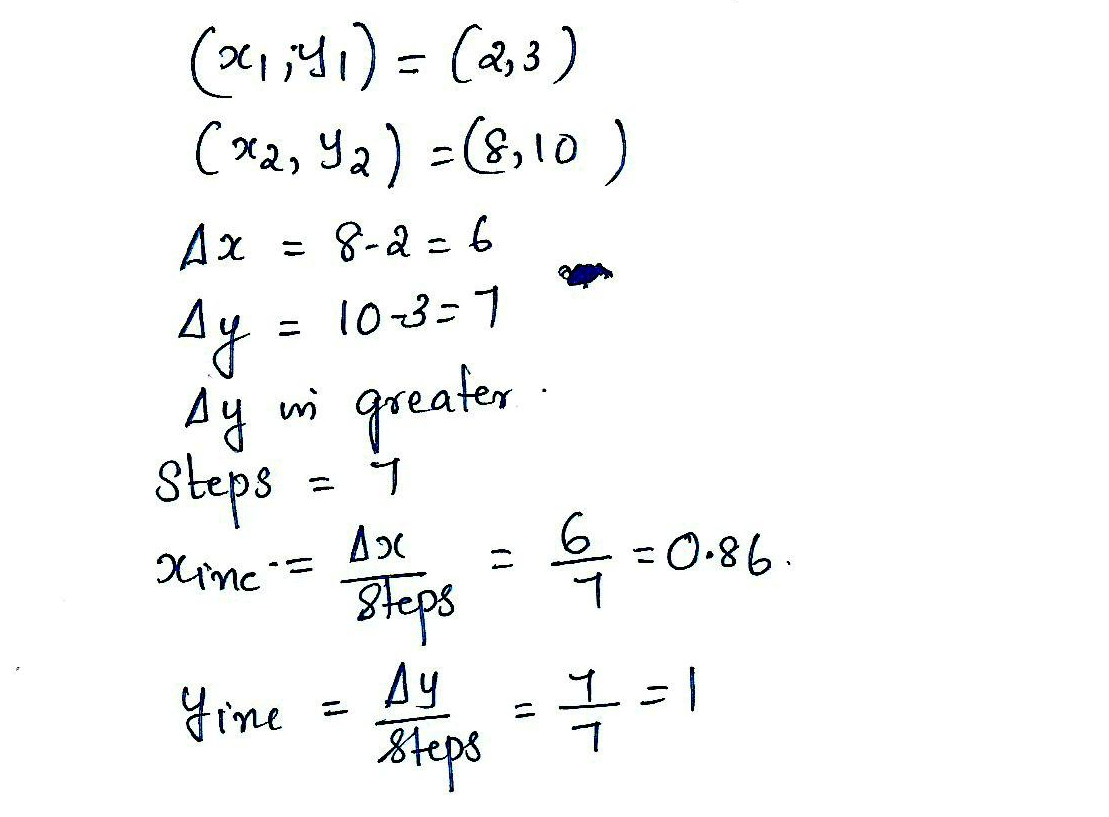 (x1, y1) = (2,3)
(x2, y2) = (8,10)
Δx = 8-2 = 6
Δy = 10-3 = 7
Δy is greater.
Steps = 7
xinc. = Δx/Steps = 6/7 = 0.86.
yinc = Δy/Steps = 7/7 = 1